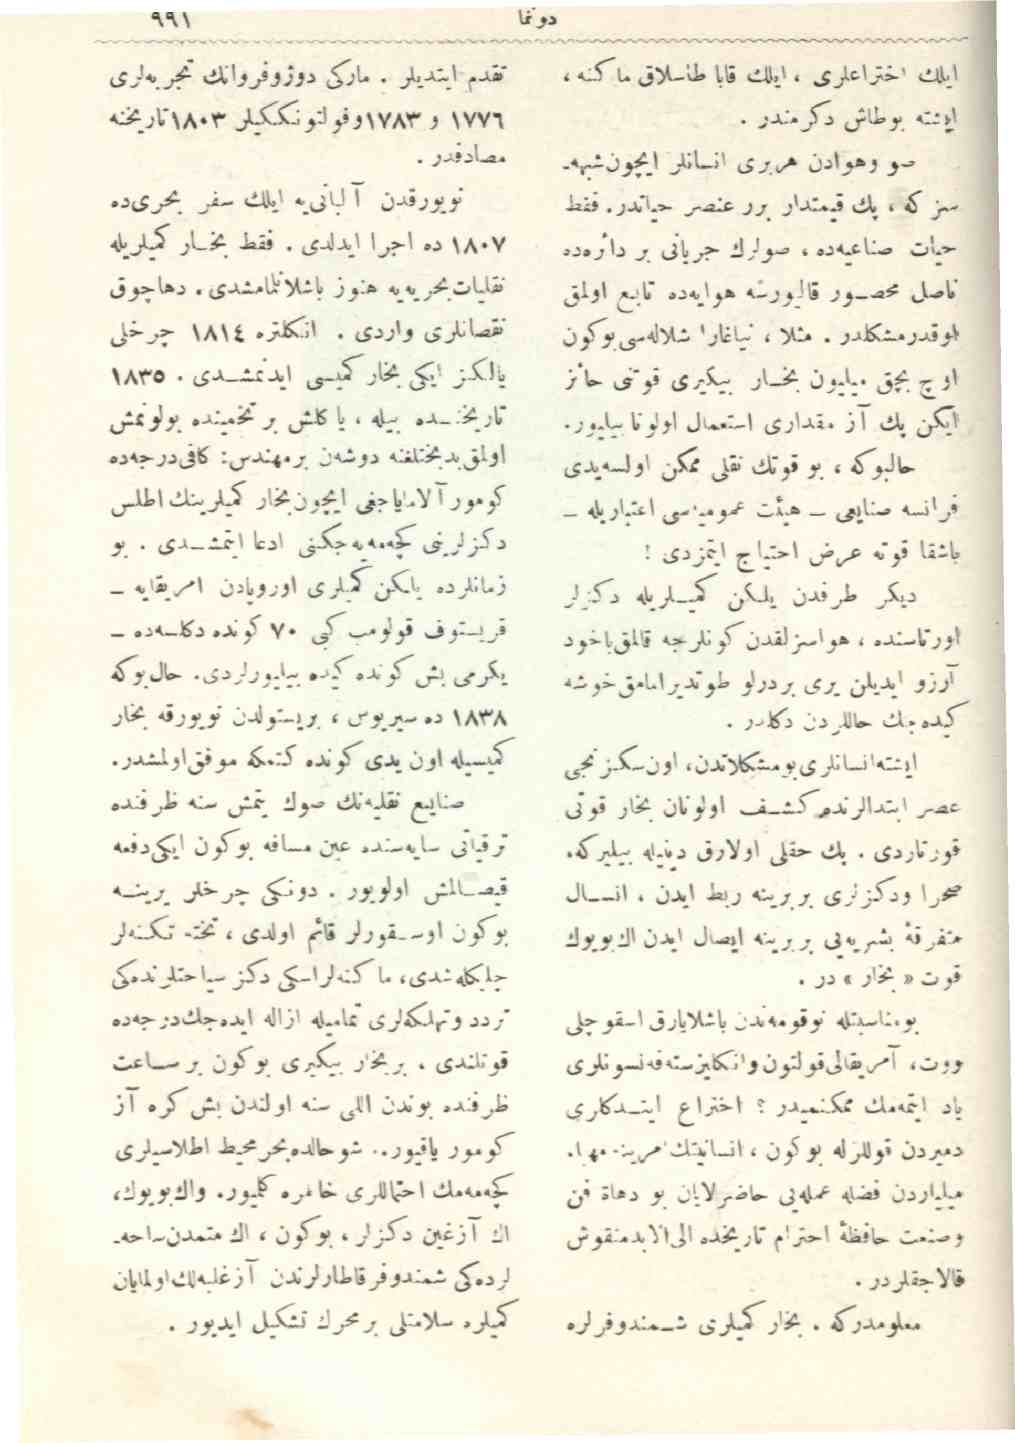 دوننما
٩٩١
ايلك اختراعلرى ، ايلك قابا طاسلاق ماكنه ،
ايشته بو طاش دكرمندر .
صو وهوادن هربرى انسانلر ايچون شبهه‌ـ
سز كه ، پك قيمتدار برر عنصر حياتدر. فقط
حيات صناعيه‌ده ، صولرك جريانى بر دائره‌ده
ناصل محصور قاليورسه هوايه‌ده تابع اولمق
اوقدر مشكلدر . مثلا ، نياغارا شلاله‌سى بوكون
اوچ بچق ميليون بخار بيكيرى قوتنى حائز
ايكن پك آز مقدارى استعمال اولونا بيليور.
حالبوكه ، بو قوتك نقلى ممكن اولسه‌يدى
فرانسه صنايعى ـ هيئت عموميه‌سى اعتباريله ـ
باشقا قوته عرض احتياج ايتمزدى !
ديكر طرفدن يلكن كميلريله دكزلر
اورتاسنده ، هواسزلقدن كونلرجه قالمق ياخود
آرزو ايديلن يرى بردرلو طوتديرامامق خوشه
كيده‌جك حاللردن دكلدر .
ايشته انسانلرى بو مشكلاتدن، اون سكزنجى
عصر ابتدالرنده كشف اولونان بخار قوتى
قورتاردى . پك حقلى اولارق دينيله بيليركه،
صحرا ودكزلرى بربرينه ربط ايدن ، انسال
متفرقهٔ بشريه‌يى بربرينه ايصال ايدن اك بويوك
قوت « بخار » در .
بومناسبتله نوقومه‌ندن باشلايارق اسقوچلى
ووت، آمريقالى فولتون وانكليز سته‌فه‌نسونلرى
ياد ايتمه‌مك ممكنميدر ؟ اختراع ايتدكلرى
دميردن قوللرله بوكون ، انسانيتك
ميلياردن فضله عمله‌يى حاضرلايان بو دهاة فن
وصنعت حافظهٔ احترام تاريخده الى‌الابد منقوش
قالاجقلردر .
معلومدركه . بخار كميلرى شمندوفرلره
تقدم ايتديلر . ماركى دوژوفروانك تجربه‌لرى
١٧٧٦ و ١٧٨٣ وفولتونككيلر ١٨٠٣ تاريخنه
مصادفدر .
نويورقدن آلبانى‌يه ايلك سفر بحرى‌ده
١٨٠٧ ده اجرا ايدلدى . فقط بخار كميلريله
نقليات بحريه‌يه هنوز باشلانلمامشدى . دها چوق
نقصانلرى واردى . انكلتره ١٨١٤ چرخلى
يالكز ايكى بخار كميسى ايدنمشدى . ١٨٣٥
تاريخنده بيله ، ياكلش بر تخمينده بولونمش
اولمق بدبختلغنه دوشه‌ن برمهندس: كافى درجه‌ده
كومور آلاماياجغى ايچون بخار كميلرينك اطلس
دكزلرينى كچه‌ميه‌جكنى ادعا ايتمشدى . بو
زمانلرده يلكن كميلرى اوروپادن امريقايه ـ
قريستوف قولومب كبى ٧٠ كونده دكلسه‌ده ـ
يكرمى بش كونده كيده بيليورلردى. حال بوكه
١٨٣٨ ده سيريوس ، بريستولدن نويورقه بخار
كميسيله اون يدى كونده كتمكه موفق اولمشدر.
صنايع نقليه‌نك صوك يتمش سنه ظرفنده
ترقياتى سايه‌سنده عين مسافه بوكون ايكى دفعه
قيصالمش اولويور . دونكى چرخلر يرينه
بوكون اوسقورلر قائم اولدى ، تخته تكنه‌لر
چليكله‌شدى، ماكنه‌لر اسكى دكز سياحتلرنده‌كى
تردد وتهلكه‌لرى تماميله ازاله ايده‌جك درجه‌ده
قوتلندى . بر بخار بيكيرى بوكون بر ساعت
ظرفنده بوندن اللى سنه اولندن بش كره آز
كومور ياقيور.. شو حالده بحر محيط اطلاسيلرى
كچه‌مه‌مك احتماللرى خاطره كليور. واك بويوك،
اك آزغين دكزلر ، بوكون ، اك متمدن ساحه‌ـ
لرده‌كى شمندوفر قاطارلرندن آز غلبه‌لك اولمايان
كميلره سلامتلى بر محرك تشكيل ايديور .